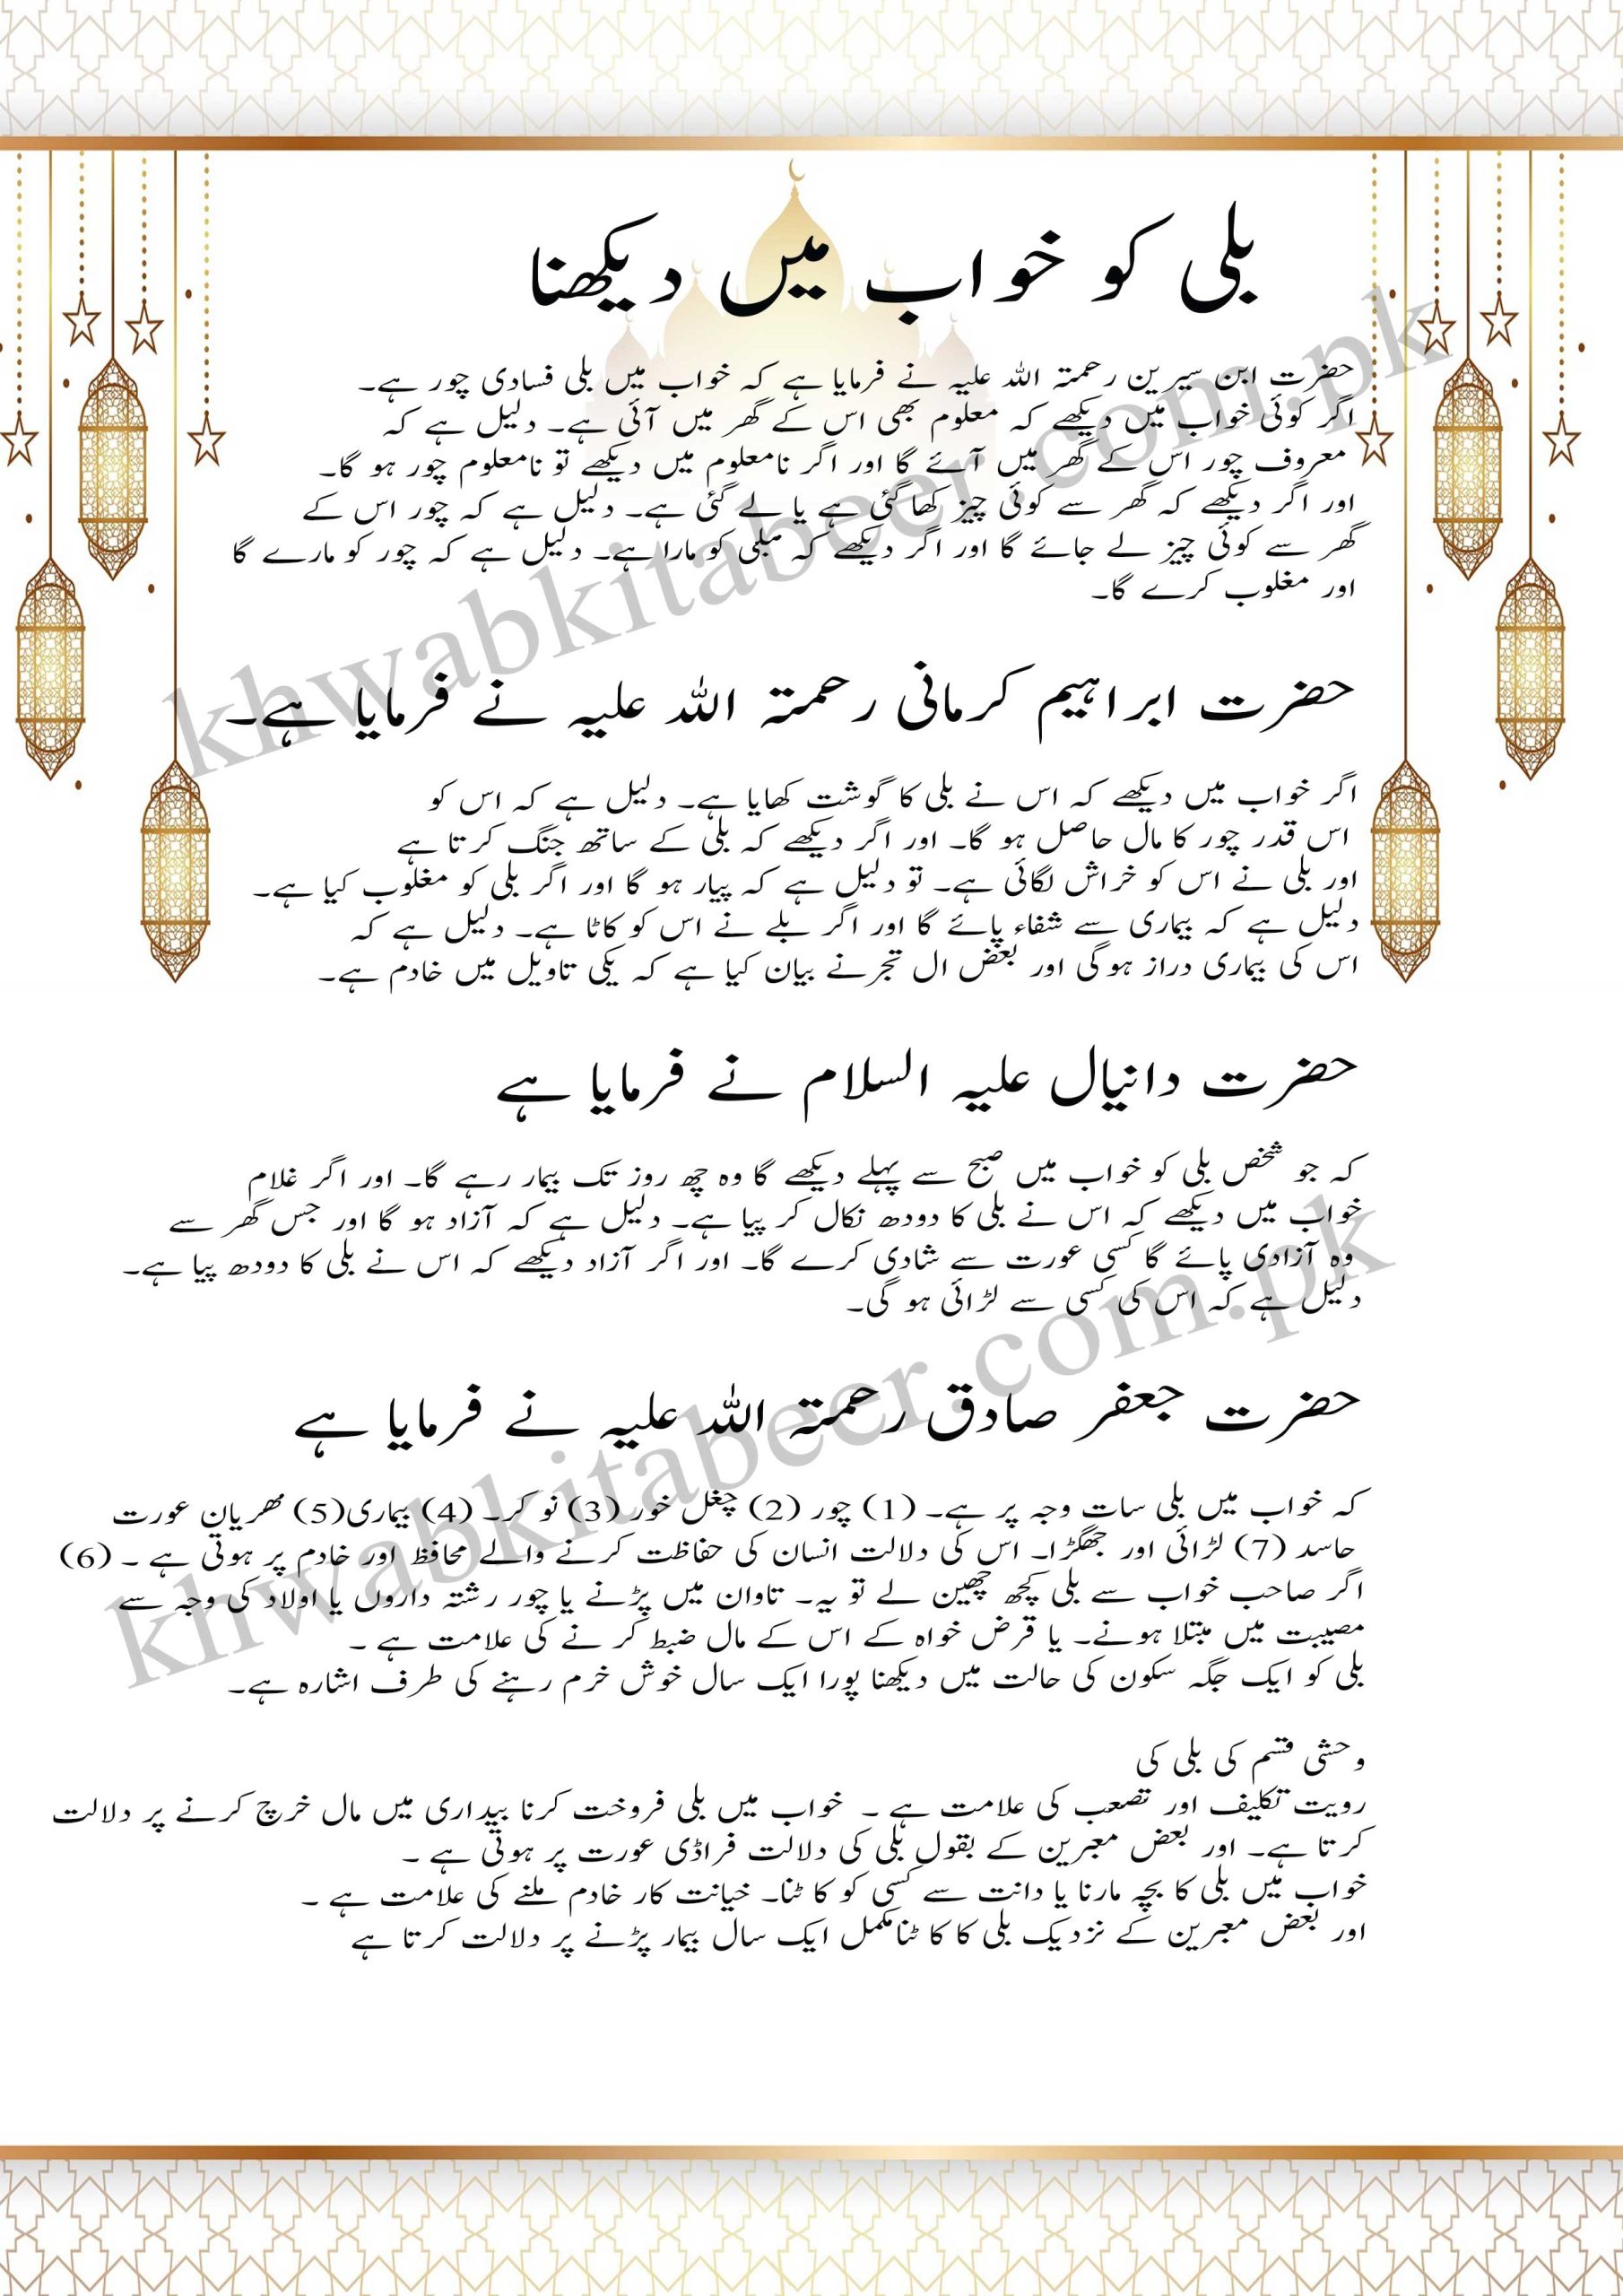 بلی کو خواب میں دیکھنا
حضرت ابن سیرین رحمتہ اللہ علیہ نے فرمایا ہے کہ خواب میں بلی فسادی چور ہے۔
اگر کوئی خواب میں دیکھے کہ معلوم بھی اس کے گھر میں آئی ہے۔ دلیل ہے کہ
معروف چور اس کے گھر میں آئے گا اور اگر نامعلوم میں دیکھے تو نامعلوم چور ہو گا۔
اور اگر دیکھے کہ گھر سے کوئی چیز کھا گئی ہے یا لے گئی ہے۔ دلیل ہے کہ چور اس کے
گھر سے کوئی چیز لے جائے گا اور اگر دیکھے کہ مبلی کو مارا ہے۔ دلیل ہے کہ چور کو مارے گا
اور مغلوب کرے گا۔
حضرت ابراہیم کرمانی رحمتہ اللہ علیہ نے فرمایا ہے۔
اگر خواب میں دیکھے کہ اس نے بلی کا گوشت کھایا ہے۔ دلیل ہے کہ اس کو
اس قدر چور کا مال حاصل ہو گا۔ اور اگر دیکھے کہ بلی کے ساتھ جنگ کرتا ہے
اور بلی نے اس کو خراش لگائی ہے۔ تو دلیل ہے کہ پیار ہو گا اور اگر بلی کو مغلوب کیا ہے۔
دلیل ہے کہ بیماری سے شفاء پائے گا اور اگر بلے نے اس کو کاٹا ہے۔ دلیل ہے کہ
اس کی بیماری دراز ہوگی اور بعض ال تجرنے بیان کیا ہے کہ یکی تاویل میں خادم ہے۔
حضرت دانیال علیہ السلام نے فرمایا ہے
کہ جو شخص بلی کو خواب میں صبح سے پہلے دیکھے گا وہ چھ روز تک بیمار رہے گا۔ اور اگر غلام
خواب میں دیکھے کہ اس نے بلی کا دودھ نکال کر پیا ہے۔ دلیل ہے کہ آزاد ہو گا اور جس گھر سے
وہ آزادی پائے گا کسی عورت سے شادی کرے گا۔ اور اگر آزاد دیکھے کہ اس نے بلی کا دودھ پیا ہے۔
دلیل ہے کہ اس کی کسی سے لڑائی ہو گی۔
حضرت جعفر صادق رحمتہ اللہ علیہ نے فرمایا ہے
کہ خواب میں بلی سات وجہ پر ہے۔ (1) چور (2) چغل خور (3) نوکر۔ (4) بیماری(5) مھربان عورت
(6) حاسد (7) لڑائی اور جھگڑا۔ اس کی دلالت انسان کی حفاظت کرنے والے محافظ اور خادم پر ہوتی ہے ۔
اگر صاحب خواب سے بلی کچھ چھین لے تو یہ۔ تاوان میں پڑنے یا چور رشتہ داروں یا اولاد کی وجہ سے
مصیبت میں مبتلا ہونے۔ یا قرض خواہ کے اس کے مال ضبط کرنے کی علامت ہے ۔
بلی کو ایک جگہ سکون کی حالت میں دیکھنا پورا ایک سال خوش خرم رہنے کی طرف اشارہ ہے۔
وحشی قسم کی بلی کی
رویت تکلیف اور تصعب کی علامت ہے ۔ خواب میں بلی فروخت کرنا بیداری میں مال خرچ کرنے پر دلالت
کرتا ہے۔ اور بعض معبرین کے بقول بلی کی دلالت فراڈی عورت پر ہوتی ہے ۔
خواب میں بلی کا بچہ مارنا یا دانت سے کسی کو کاٹنا۔ خیانت کار خادم ملنے کی علامت ہے ۔
اور بعض معبرین کے نزدیک بلی کا کاٹنا مکمل ایک سال بیمار پڑنے پر دلالت کرتا ہے
khwabkitabeer.com.pk
khwabkitabeer.com.pk